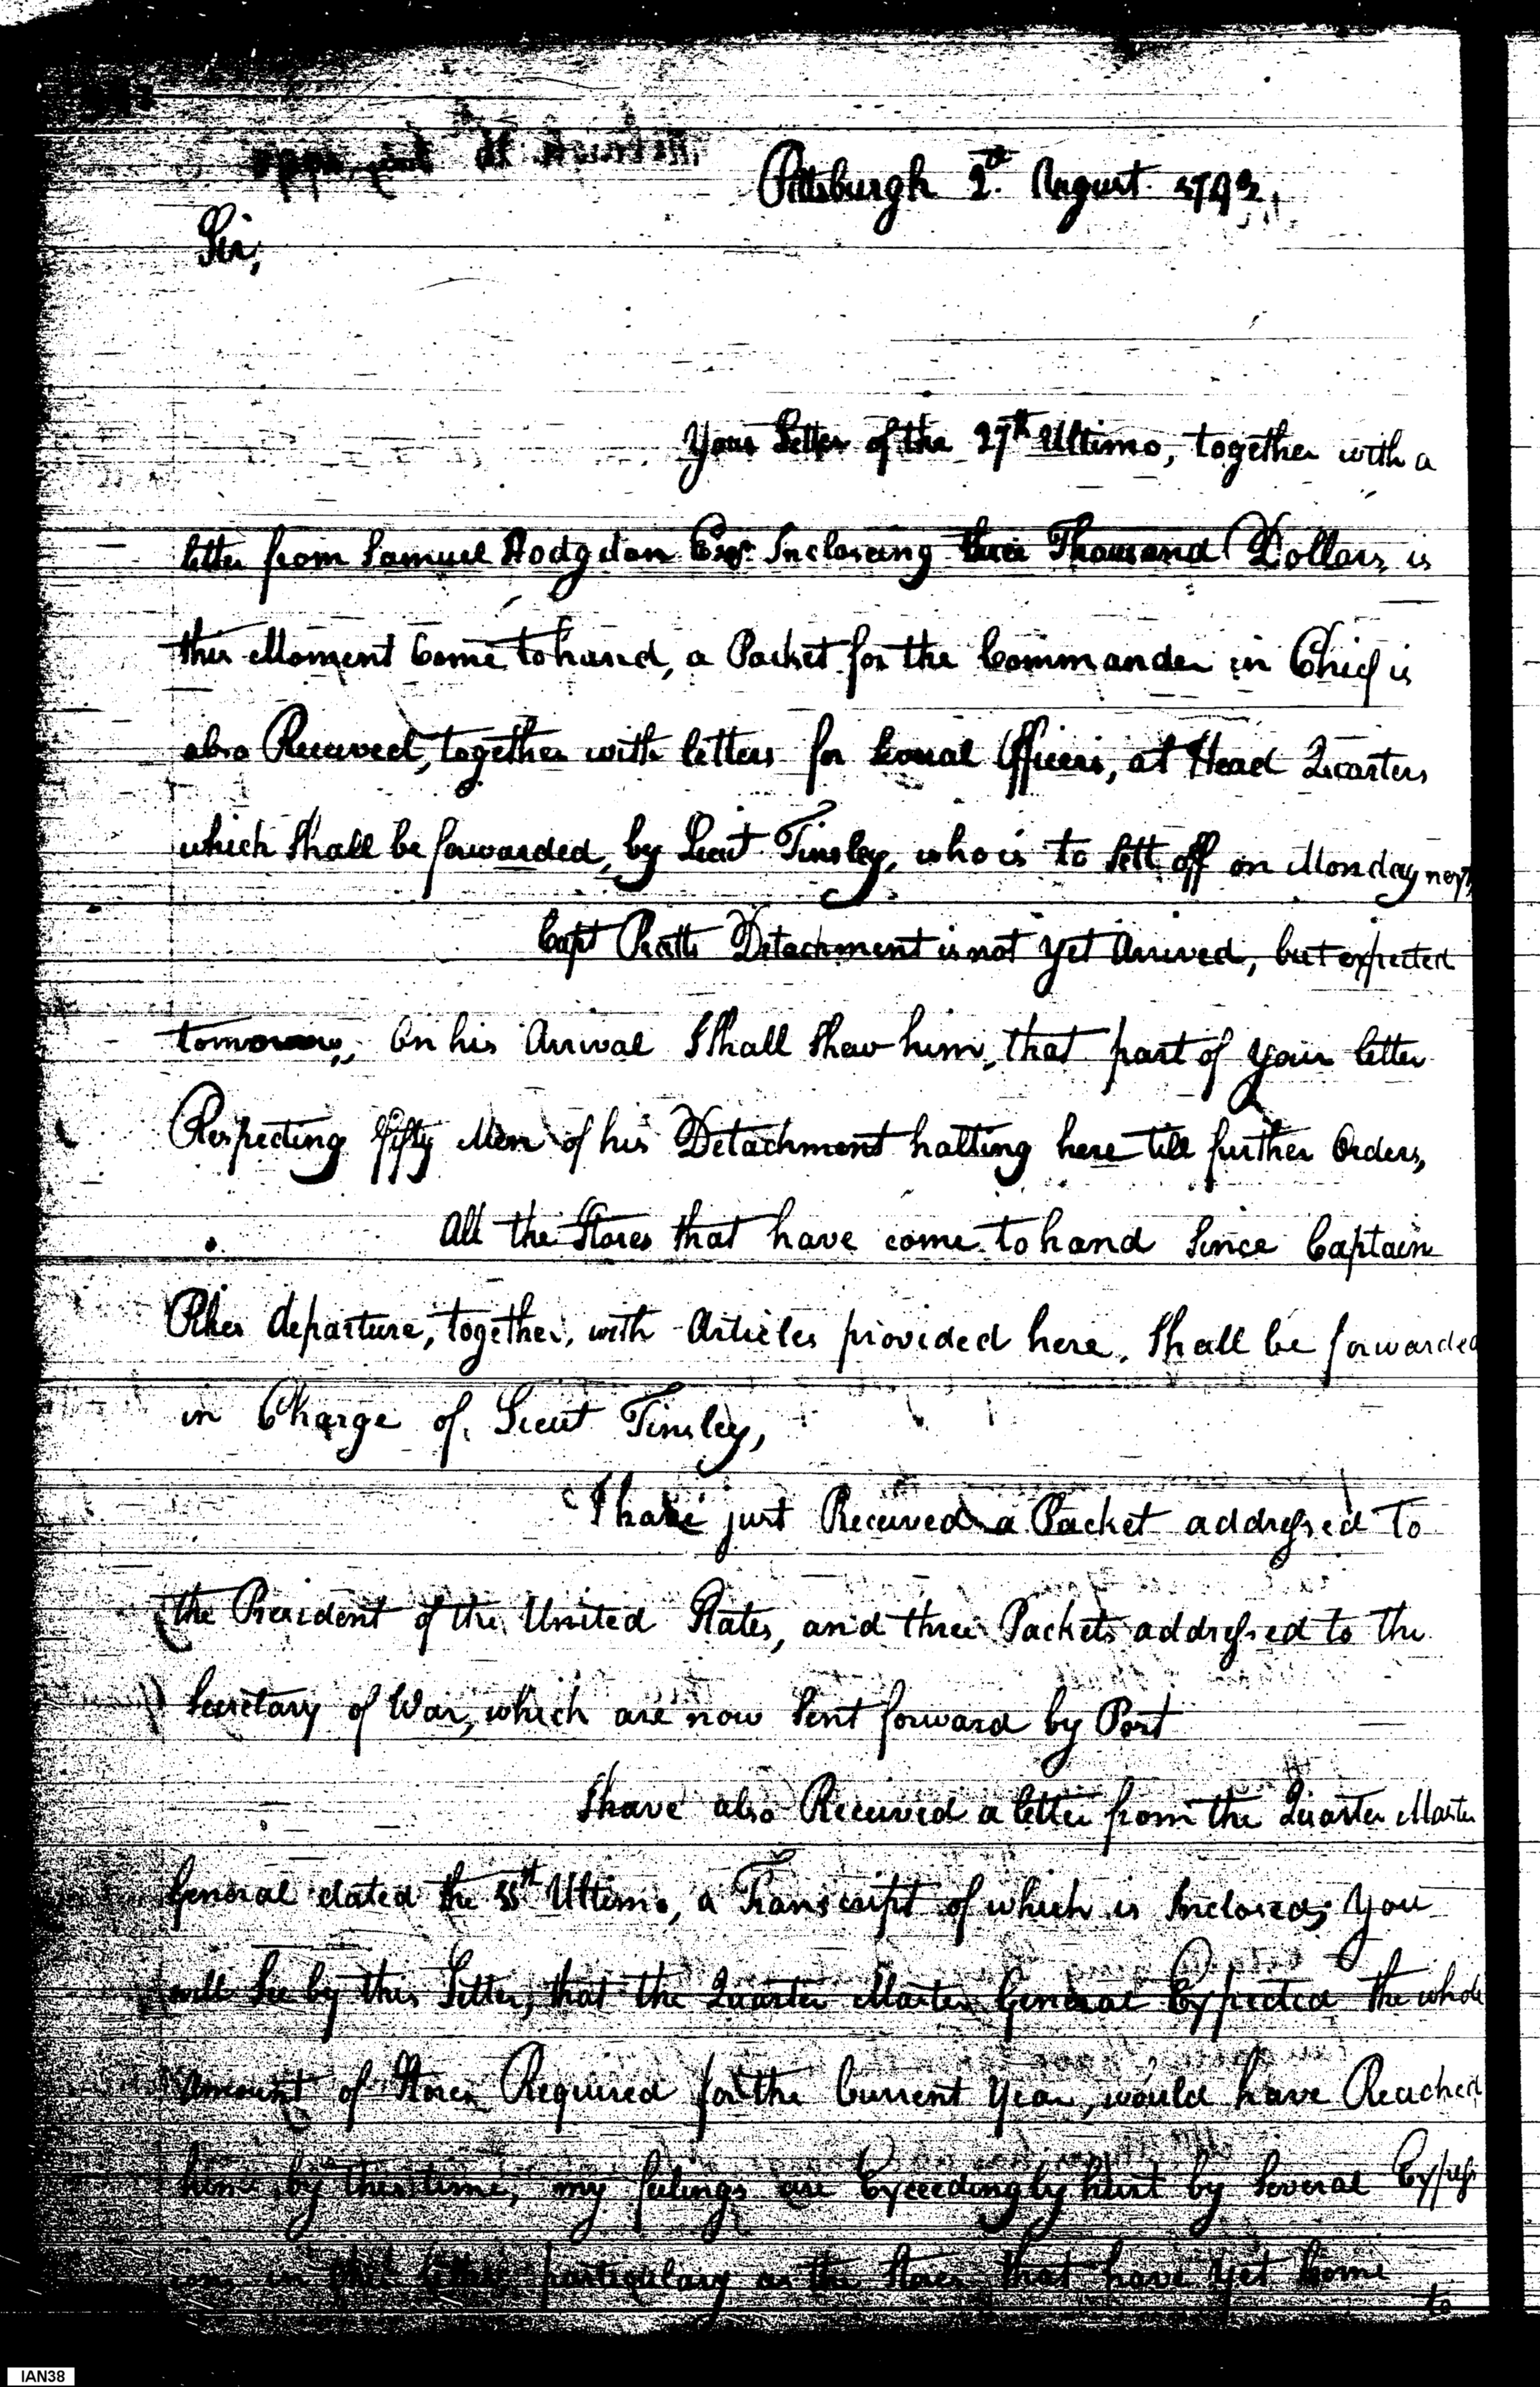 Pittsburgh 2d. August 1793,
Sir,
Your Letter of the 27th Ultimo, together with a
letter from Samuel Hodgdon Esqr. Inclosing three Thousand Dollars, is
this Moment Come to hand, a Packet for the Commander in Chief is
also Received, together with letters for Several Officers, at Head Quarters
which Shall be forwarded, by Lieut Tinsley, who is to Sett off on Monday next,
Capt Pratts Detachment is not Yet Arrived, but expected
tomorrow, On his Arrival I Shall Shew him, that part of Your letter
Respecting fifty Men of his Detachment halting here till further Orders,
All the Stores that have come to hand Since Captain
Pikes departure, together, with Articles provided here, Shall be forwarded
in Charge of, Lieut Tinsley,
I have just Received a Packet addressed To
the President of the United States, and three Packets addressed to the
Secretary of War, which are now Sent forward by Post
I have also Received a letter from the Quarter Master
General dated the Ultimo, a Transcript of which is Inclosed; You
will See by this Letter, that the Quarter Master General Expected the whole
Amount of Stores Required for the Current Year, would have Reached
him by this time, my feelings are Exceedingly hurt by Several Express
in this letter particulary as the Stores that have Yet Come
to
IAN38